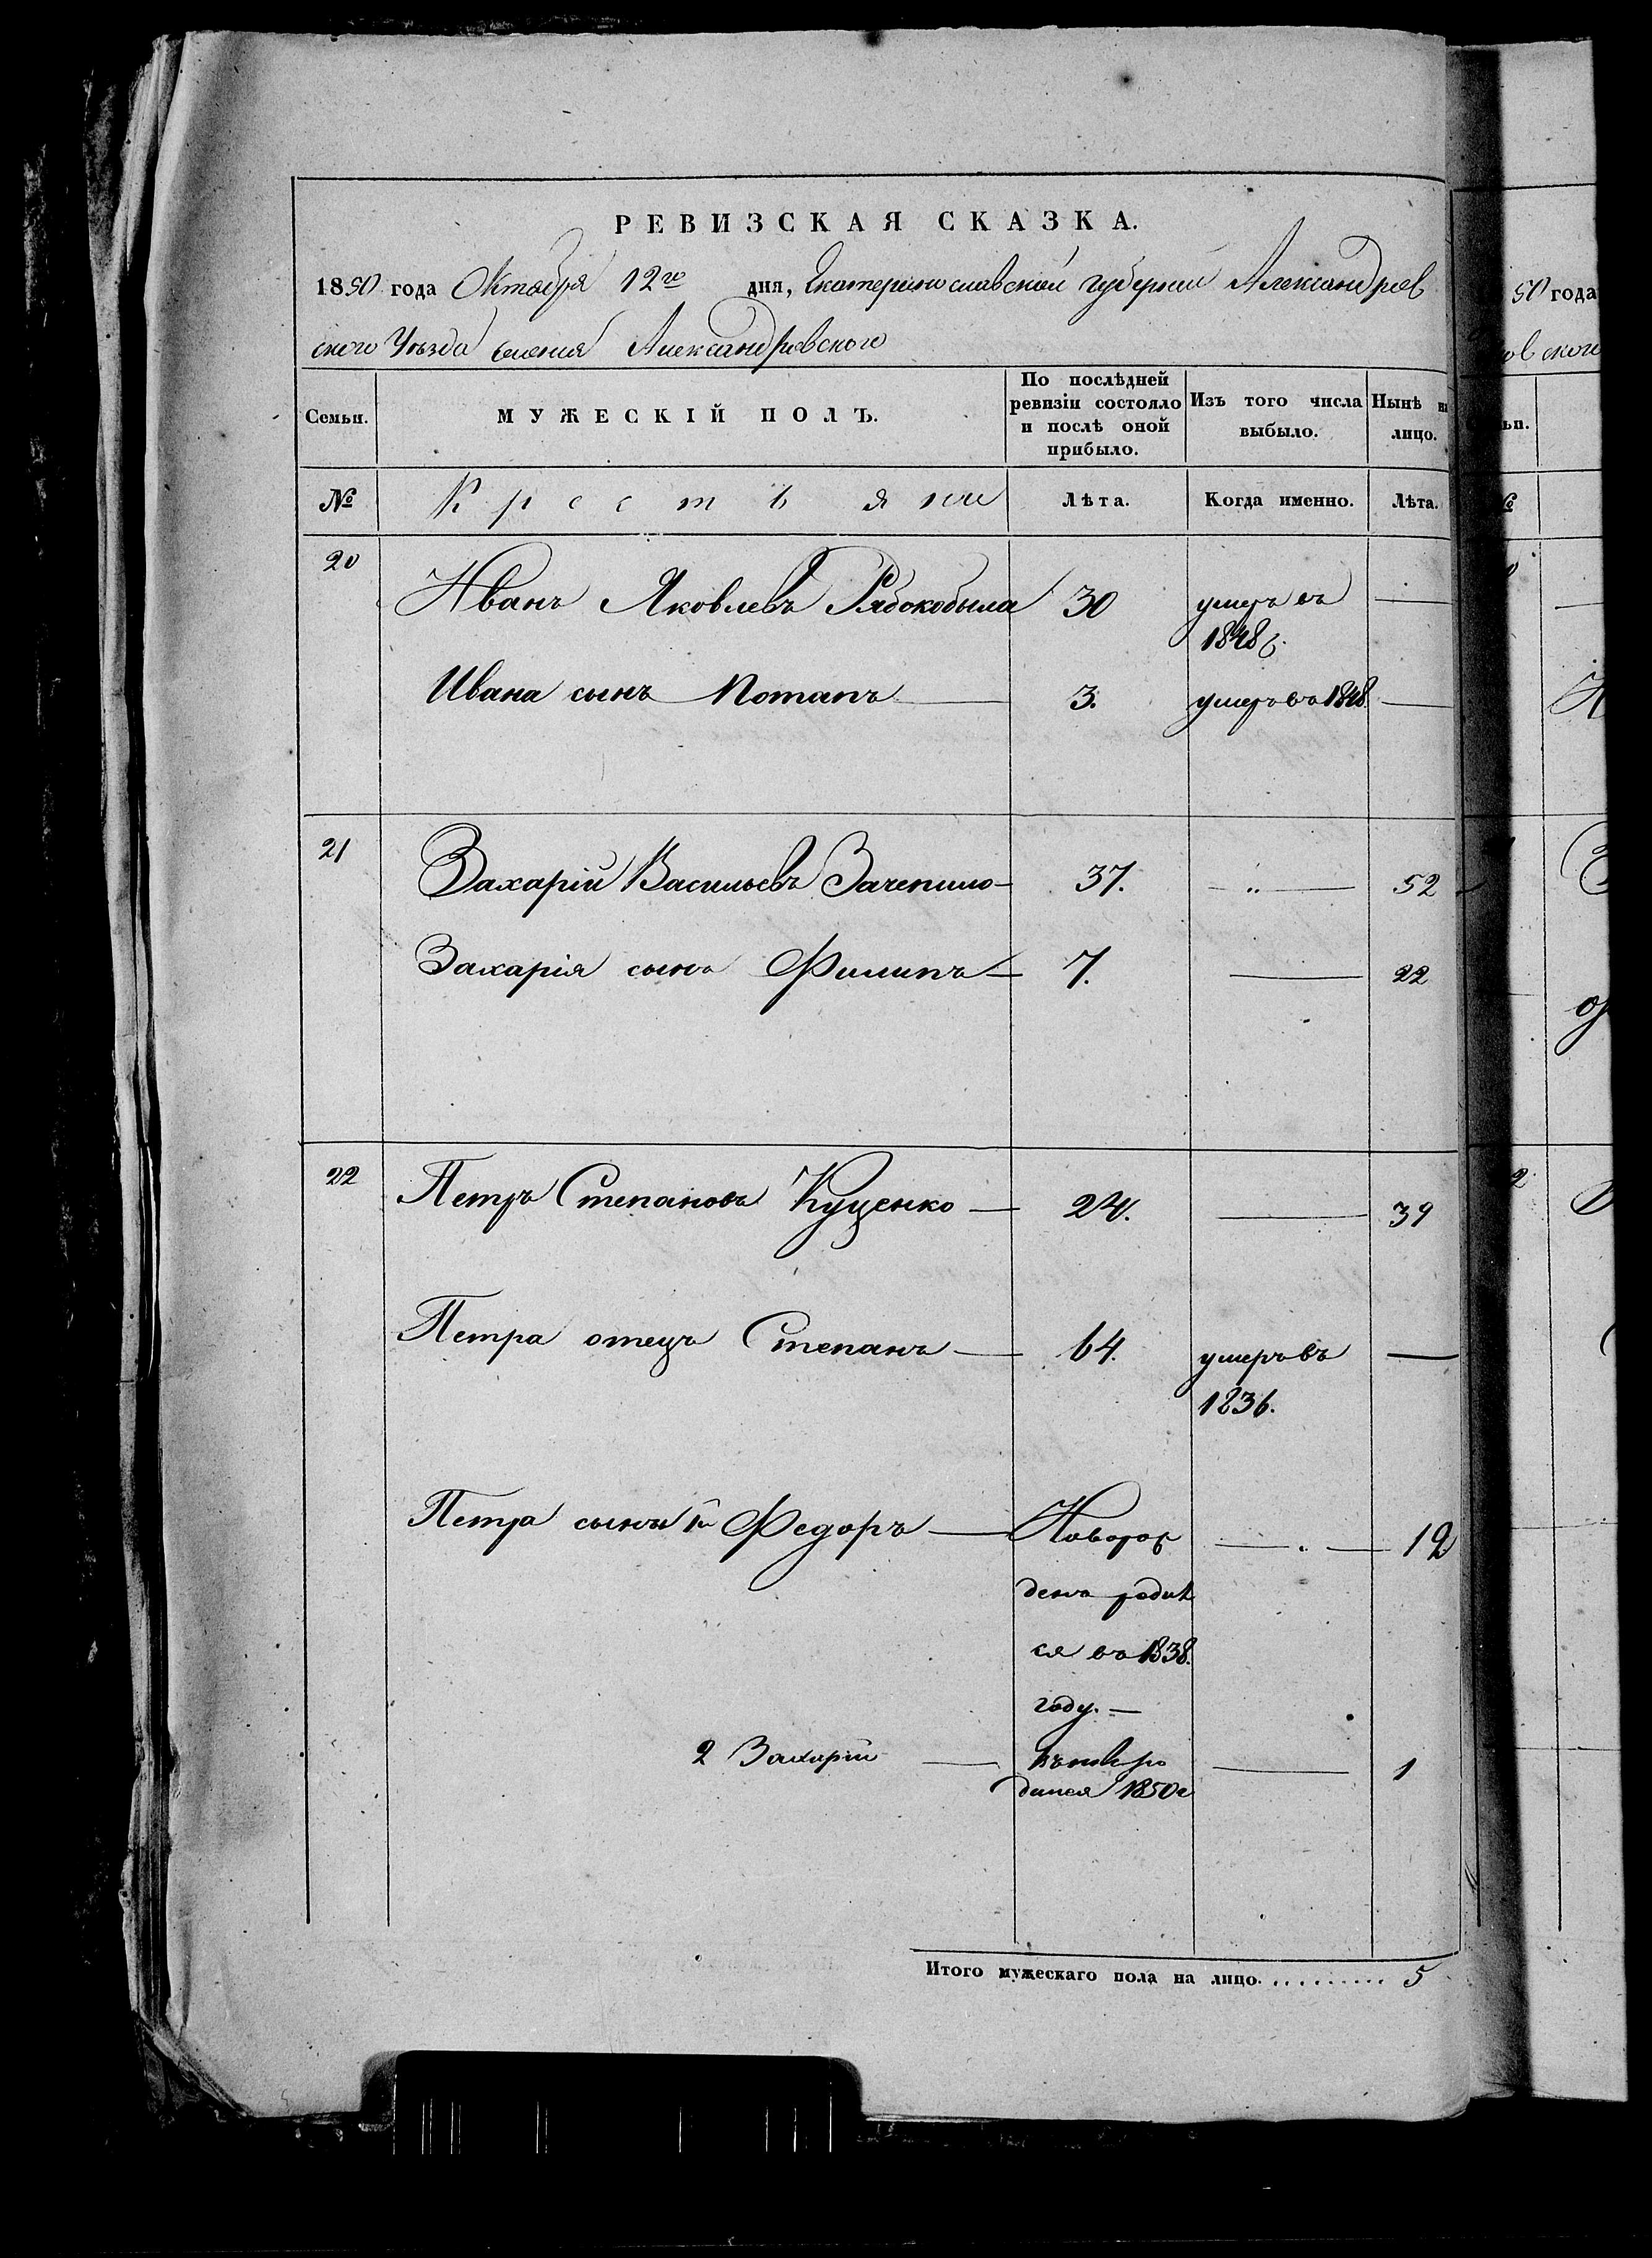 РЕВИЗСКАЯ СКАЗКА.
1850 года Октября 12го дня, Екатеринославской губернии Александров
ского Уѣзда селения Александровского
Семьи. МУЖЕСКІЙ ПОЛЪ. По послѣдней ревизіи состояло и послѣ оной прибыло. Изъ того числа выбыло. Нынѣ на лицо.
№ Крестьяне Лѣта. Когда именно. Лѣта.
20 Иванъ Яковлевъ Рябокобыла 30 умеръ въ —
1848 г.
Ивана сынъ Потапъ — 3. умеръ въ 1848. —
21 Захарій Васильевъ Зачепило — 37. — 52
Захарія сынъ Филипъ — 7. — 22
22 Петръ Степановъ Куценко — 24. — 39
Петра отецъ Степанъ — 64. умеръ въ —
1836.
Петра сынъ 1й Федоръ — Новорож — 12
денъ родил
ся въ 1838.
году. —
2 Захарій — ро — 1
дился 1850г
Итого мужескаго пола на лицо. . . . . . . . . . 5
50 года
овского
ьи.
№